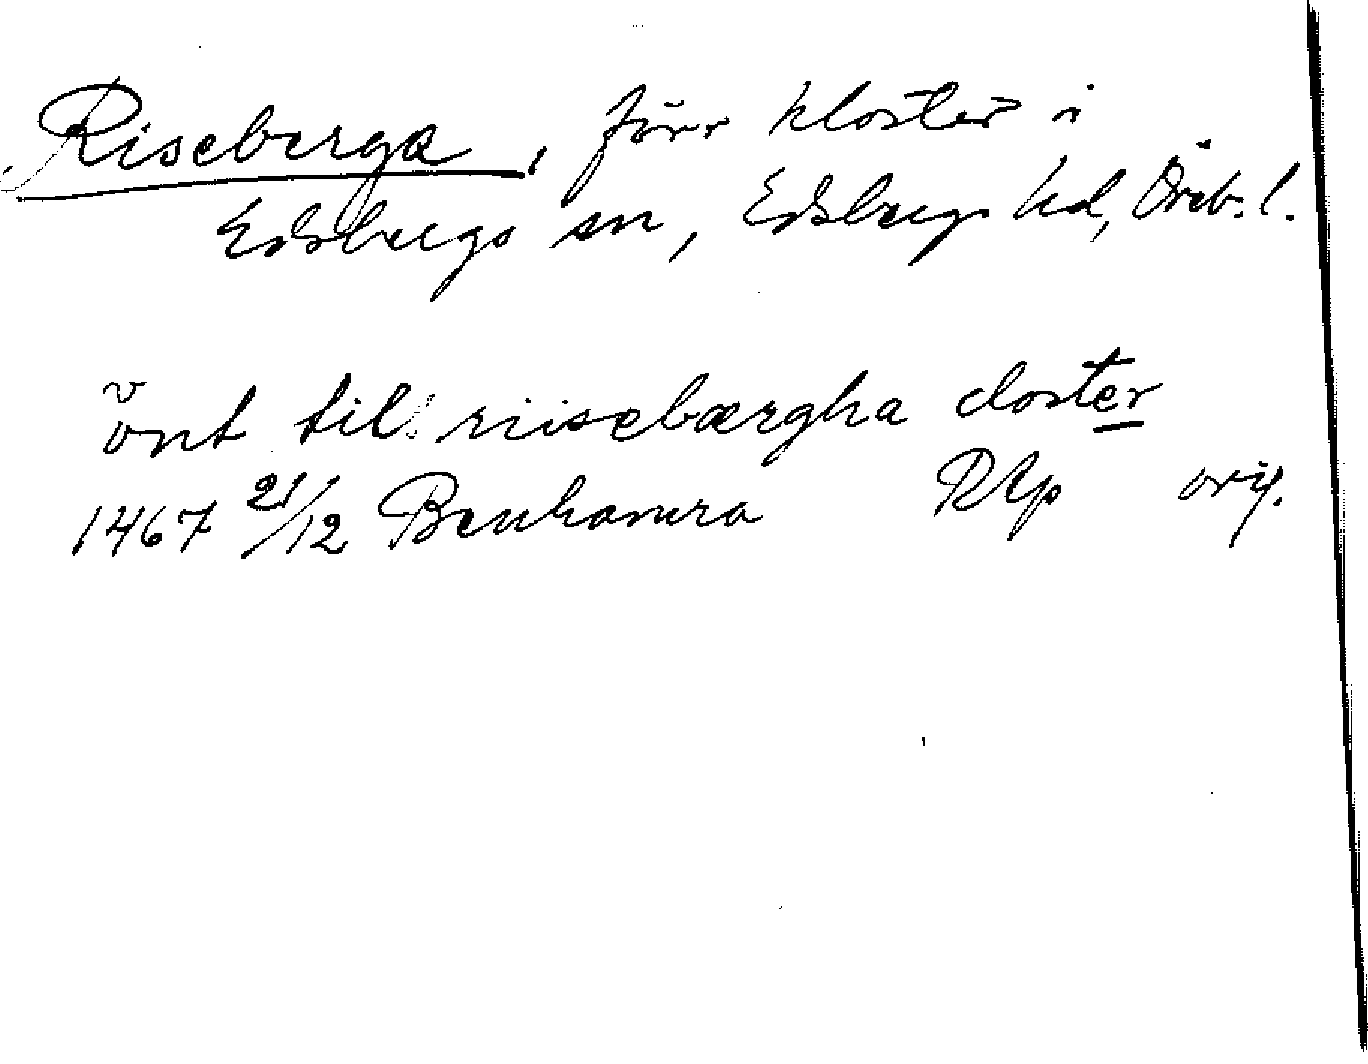 Riseberga, förr kloster i
Edsbergs sn, Edsbergs hd, Öreb. l.
v
ont til riisebærgha closter
1467 21/12 Benhamra RAp orig.